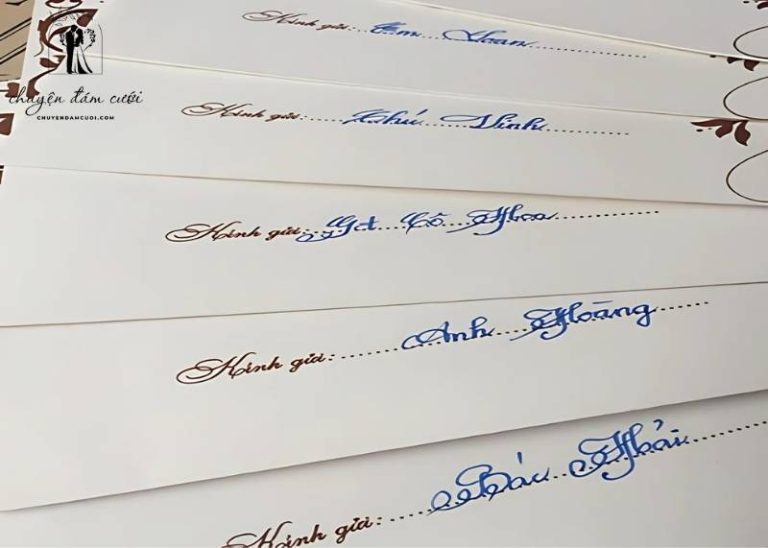 chuyện đám cưới
CHUYENDAMCUOI.COM
Kính gửi: Em Loan
Kính gửi: Chú Vinh
Kính gửi: Gđ Cô Hoa
Kính gửi: Anh Hoàng
Kính gửi: Bác Hải